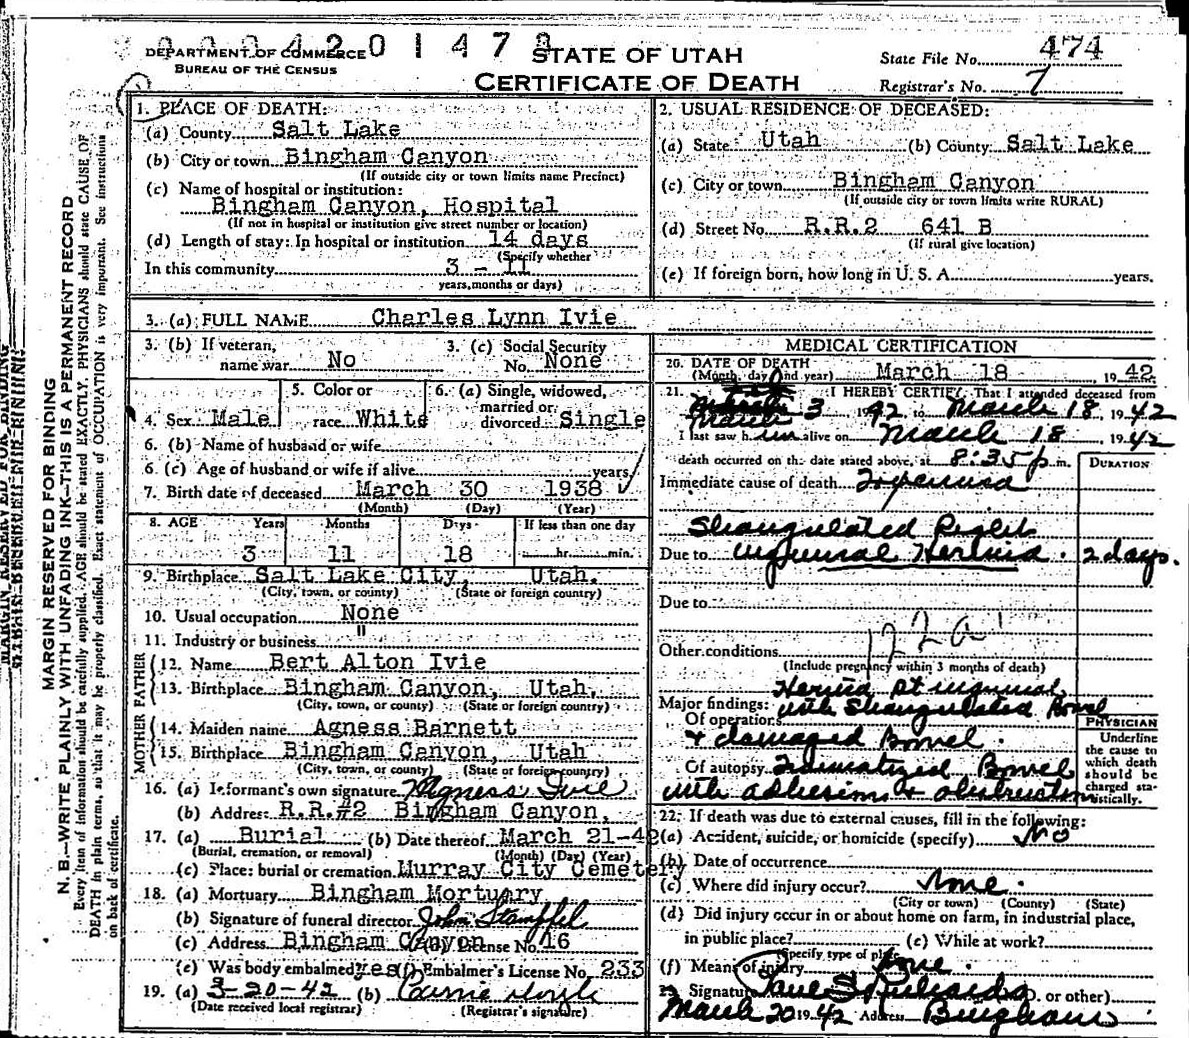 0 0 0 4 2 0 1 4 7 8
DEPARTMENT OF COMMERCE
BUREAU OF THE CENSUS
STATE OF UTAH
CERTIFICATE OF DEATH
State File No. 474
Registrar's No. 7
MARGIN RESERVED FOR BINDING
N. B.—WRITE PLAINLY WITH UNFADING INK—THIS IS A PERMANENT RECORD
Every item of information should be carefully supplied. AGE should be stated EXACTLY. PHYSICIANS should state CAUSE OF
DEATH in plain terms, so that it may be properly classified. Exact statement of OCCUPATION is very important. See instructions
on back of certificate.
1. PLACE OF DEATH:
(a) County Salt Lake
(b) City or town Bingham Canyon
(If outside city or town limits name Precinct)
(c) Name of hospital or institution:
Bingham Canyon, Hospital
(If not in hospital or institution give street number or location)
(d) Length of stay: In hospital or institution 14 days
(Specify whether
In this community 3 - 11
years, months or days)
2. USUAL RESIDENCE OF DECEASED:
(a) State Utah (b) County Salt Lake
(c) City or town Bingham Canyon
(If outside city or town limits write RURAL)
(d) Street No. R.R.2 641 B
(If rural give location)
(e) If foreign born, how long in U. S. A. years.
3. (a) FULL NAME Charles Lynn Ivie
3. (b) If veteran,
name war No
3. (c) Social Security
No. None
4. Sex Male
5. Color or
race White
6. (a) Single, widowed,
married or
divorced Single
6. (b) Name of husband or wife
6. (c) Age of husband or wife if alive years
7. Birth date of deceased March 30 1938
(Month) (Day) (Year)
8. AGE Years Months Days If less than one day
3 11 18 hr. min.
9. Birthplace Salt Lake City, Utah.
(City, town, or county) (State or foreign country)
10. Usual occupation None
11. Industry or business "
FATHER
12. Name Bert Alton Ivie
13. Birthplace Bingham Canyon, Utah.
(City, town, or county) (State or foreign country)
MOTHER
14. Maiden name Agness Barnett
15. Birthplace Bingham Canyon, Utah
(City, town, or county) (State or foreign country)
16. (a) Informant's own signature Agness Ivie
(b) Address R.R.#2 Bingham Canyon,
17. (a) Burial (b) Date thereof March 21-42
(Burial, cremation, or removal) (Month) (Day) (Year)
(c) Place: burial or cremation Murray City Cemetery
18. (a) Mortuary Bingham Mortuary
(b) Signature of funeral director John Stampfel
(c) Address Bingham Canyon (d) License No. 16
(e) Was body embalmed yes (f) Embalmer's License No. 233
19. (a) 3-20-42 (b)
(Date received local registrar) (Registrar's signature)
MEDICAL CERTIFICATION
20. DATE OF DEATH
(Month, day and year) March 18 1942
21. I HEREBY CERTIFY, That I attended deceased from
March 3 1942 to March 18, 1942
I last saw him alive on March 18, 1942
death occurred on the date stated above, at 8:35 p m.
DURATION
Immediate cause of death Toxemia
Strangulated Right
Due to inguinal Hernia. 2 days.
Due to
122a
Other conditions
(Include pregnancy within 3 months of death)
Hernia Rt inguinal
Major findings: with Strangulated Bowel
Of operations
& damaged Bowel.
Of autopsy Traumatized Bowel
with adhesions & obstruction
PHYSICIAN
Underline
the cause to
which death
should be
charged sta-
tistically.
22. If death was due to external causes, fill in the following:
(a) Accident, suicide, or homicide (specify) No
(b) Date of occurrence
(c) Where did injury occur? None.
(City or town) (County) (State)
(d) Did injury occur in or about home on farm, in industrial place,
in public place? (e) While at work?
(Specify type of place)
(f) Means of injury None.
23. Signature Paul S. (M.D. or other)
March 20 1942 Address Bingham